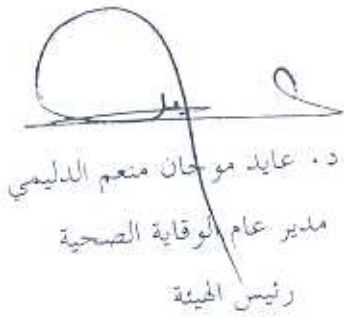 د. عايد موحان منعم الدليمي
مدير عام الوقاية الصحية
رئيس الهيئة